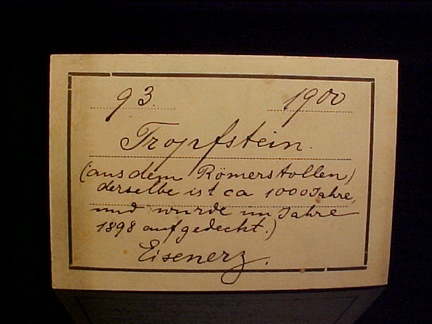 93. 1900
Tropfstein.
(aus dem Römerstollen)
derselbe ist ca 1000 Jahre,
und wurde im Jahre
1898 aufgedeckt.)
Eisenerz.